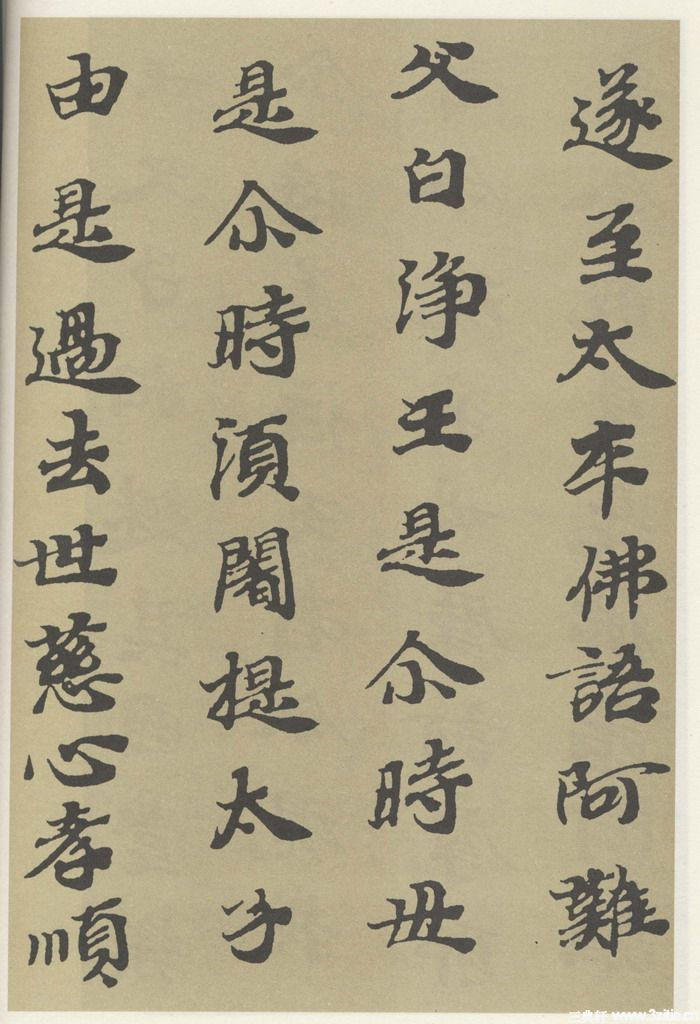 遂至太平佛語阿難
父白浄王是尒時母
是尒時湏闍提太子
由是過去世慈心孝順